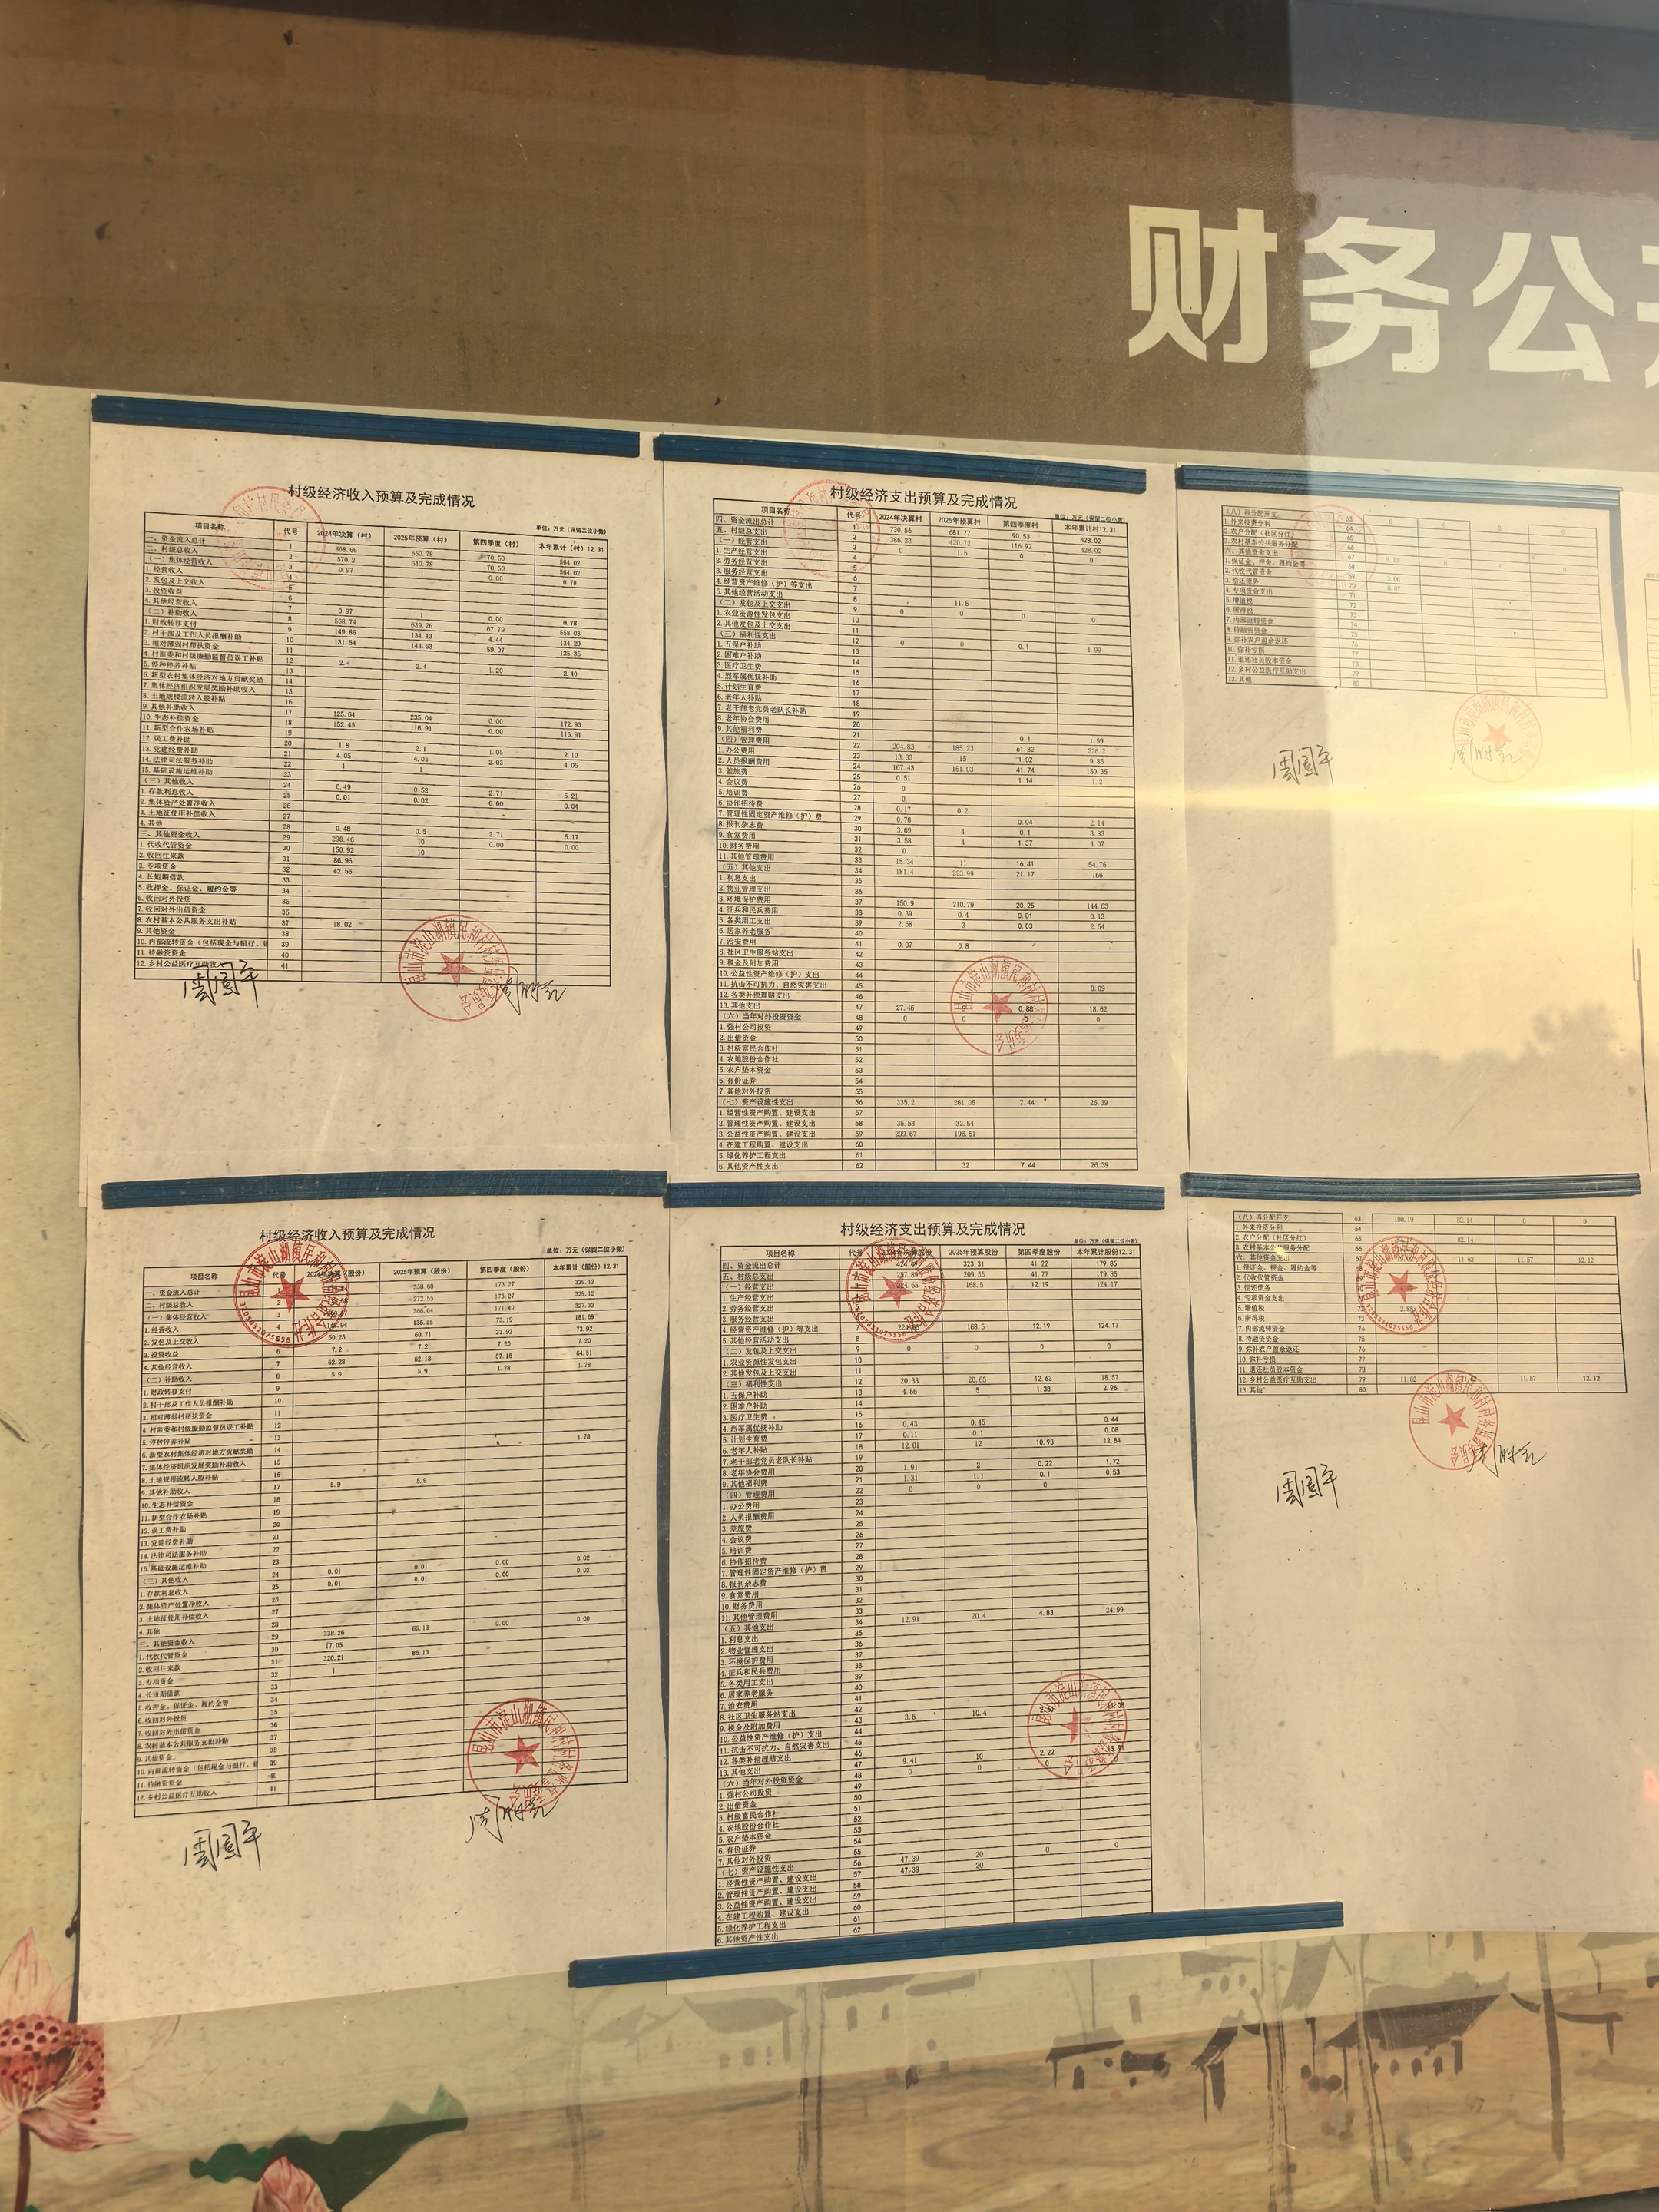 财务公
村级经济收入预算及完成情况
单位：万元（保留二位小数）
项目名称 代号 2024年决算（村） 2025年预算（村） 第四季度（村） 本年累计（村）12.31
一、资金流入总计 1 868.66 650.78 70.50 564.02
二、村级总收入 2 570.2 640.78 70.50 564.02
（一）集体经营收入 3 0.97 1 0.00 0.78
1.经营收入 4
2.发包及上交收入 5
3.投资收益 6
4.其他经营收入 7 0.97 1 0.00 0.78
（二）补助收入 8 568.74 639.26 67.79 558.03
1.财政转移支付 9 149.86 134.13 4.44 134.29
2.村干部及工作人员报酬补助 10 131.54 143.63 59.07 125.35
3.相对薄弱村帮扶资金 11
4.村监委和村级廉勤监督员误工补贴 12 2.4 2.4 1.20 2.40
5.停种停养补贴 13
6.新型农村集体经济对地方贡献奖励 14
7.集体经济组织发展奖励补助收入 15
8.土地规模流转入股补贴 16
9.其他补助收入 17 125.64 235.04 0.00 172.93
10.生态补偿资金 18 152.45 116.91 0.00 116.91
11.新型合作农场补贴 19
12.误工费补助 20 1.8 2.1 1.05 2.10
13.党建经费补助 21 4.05 4.05 2.03 4.05
14.法律司法服务补助 22 1 1
15.基础设施运维补助 23
（三）其他收入 24 0.49 0.52 2.71 5.21
1.存款利息收入 25 0.01 0.02 0.00 0.04
2.集体资产处置净收入 26
3.土地征使用补偿收入 27
4.其他 28 0.48 0.5 2.71 5.17
三、其他资金收入 29 298.46 10 0.00 0.00
1.代收代管资金 30 150.92 10
2.收回往来款 31 86.96
3.专项资金 32 42.56
4.长短期借款 33
5.收押金、保证金、履约金等 34
6.收回对外投资 35
7.收回对外出借资金 36
8.农村基本公共服务支出补贴 37 18.02
9.其他资金 38
10.内部流转资金（包括现金与银行、 39
11.待融资资金 40
12.乡村公益医疗互助收入 41
周国平
昆山市淀山湖镇民和村村务监督委员会
村级经济支出预算及完成情况
单位：万元（保留二位小数）
项目名称 代号 2024年决算村 2025年预算村 第四季度村 本年累计村12.31
四、资金流出总计 1 730.56 681.77 90.53 428.02
五、村级总支出 2 386.23 420.72 116.92 428.02
（一）经营支出 3 0 11.5 0 0
1.生产经营支出 4
2.劳务经营支出 5
3.服务经营支出 6
4.经营资产维修（护）等支出 7
5.其他经营活动支出 8 11.5
（二）发包及上交支出 9 0 0 0 0
1.农业资源性发包支出 10
2.其他发包及上交支出 11
（三）福利性支出 12 0 0 0.1 1.99
1.五保户补助 13
2.困难户补助 14
3.医疗卫生费 15
4.烈军属优抚补助 16
5.计划生育费 17
6.老年人补贴 18
7.老干部老党员老队长补贴 19
8.老年协会费用 20
9.其他福利费 21 0.1 1.99
（四）管理费用 22 204.83 185.23 61.82 228.2
1.办公费用 23 13.33 15 1.02 9.85
2.人员报酬费用 24 167.43 151.03 41.74 150.35
3.差旅费 25 0.51 1.14 1.2
4.会议费 26 0
5.培训费 27 0
6.协作招待费 28 0.17 0.2
7.管理性固定资产维修（护）费 29 0.78 0.04 2.14
8.报刊杂志费 30 3.69 4 0.1 3.83
9.食堂费用 31 3.58 4 1.37 4.07
10.财务费用 32 0
11.其他管理费用 33 15.34 11 16.41 54.76
（五）其他支出 34 181.4 223.99 21.17 166
1.利息支出 35
2.物业管理支出 36
3.环境保护费用 37 150.9 210.79 20.25 144.63
4.征兵和民兵费用 38 0.39 0.4 0.01 0.13
5.各类用工支出 39 2.58 3 0.03 2.54
6.居家养老服务 40
7.治安费用 41 0.07 0.8
8.社区卫生服务站支出 42
9.税金及附加费用 43
10.公益性资产维修（护）支出 44
11.抗击不可抗力、自然灾害支出 45 0.09
12.各类补偿理赔支出 46
13.其他支出 47 27.46 9 0.88 18.62
（六）当年对外投资资金 48 0 0 0 0
1.强村公司投资 49
2.出借资金 50
3.村级富民合作社 51
4.农地股份合作社 52
5.农户垫本资金 53
6.有价证券 54
7.其他对外投资 55
（七）资产设施性支出 56 335.2 261.05 7.44 26.39
1.经营性资产购置、建设支出 57
2.管理性资产购置、建设支出 58 35.53 32.54
3.公益性资产购置、建设支出 59 299.67 196.51
4.在建工程购置、建设支出 60
5.绿化养护工程支出 61
6.其他资产性支出 62 32 7.44 26.39
昆山市淀山湖镇民和村村务监督委员会
（八）再分配开支 63 0 0 0
1.外来投资分利 64
2.农户分配（社区分红） 65
3.农村基本公共服务分配 66
六、其他资金支出 67 9.13 0 0
1.保证金、押金、履约金等 68
2.代收代管资金 69 3.06
3.偿还债务 70 6.07
4.专项资金支出 71
5.增值税 72
6.所得税 73
7.内部流转资金 74
8.待融资资金 75
9.弥补农户盈余返还 76
10.弥补亏损 77
11.退还社员股本资金 78
12.乡村公益医疗互助支出 79
13.其他 80
周国平
村级经济收入预算及完成情况
单位：万元（保留二位小数）
项目名称 代号 2024年决算（股份） 2025年预算（股份） 第四季度（股份） 本年累计（股份）12.31
一、资金流入总计 358.68 173.27 329.12
二、村级总收入 2 272.55 173.27 329.12
（一）集体经营收入 3 266.64 171.49 327.32
1.经营收入 4 136.55 73.19 181.69
2.发包及上交收入 50.25 60.71 33.92 73.92
3.投资收益 6 7.2 7.2 7.20 7.20
4.其他经营收入 7 62.28 62.18 57.18 64.51
（二）补助收入 8 5.9 5.9 1.78 1.78
1.财政转移支付 9
2.村干部及工作人员报酬补助 10
3.相对薄弱村帮扶资金 11
4.村监委和村级廉勤监督员误工补贴 12
5.停种停养补贴 13 1.78
6.新型农村集体经济对地方贡献奖励 14
7.集体经济组织发展奖励补助收入 15
8.土地规模流转入股补贴 16
9.其他补助收入 17 5.9 5.9
10.生态补偿资金 18
11.新型合作农场补贴 19
12.误工费补助 20
13.党建经费补助 21
14.法律司法服务补助 22
15.基础设施运维补助 23
（三）其他收入 24 0.01 0.01 0.00 0.02
1.存款利息收入 25 0.01 0.01 0.00 0.02
2.集体资产处置净收入 26
3.土地征使用补偿收入 27
4.其他 28
三、其他资金收入 29 338.26 86.13 0.00 0.00
1.代收代管资金 30 17.05
2.收回往来款 31 320.21 86.13
3.专项资金 32 1
4.长短期借款 33
5.收押金、保证金、履约金等 34
6.收回对外投资 35
7.收回对外出借资金 36
8.农村基本公共服务支出补贴 37
9.其他资金 38
10.内部流转资金（包括现金与银行、 39
11.待融资资金 40
12.乡村公益医疗互助收入 41
周国平
昆山市淀山湖镇民和村村务监督委员会
村级经济支出预算及完成情况
单位：万元（保留二位小数）
项目名称 代号 2024年决算股份 2025年预算股份 第四季度股份 本年累计股份12.31
四、资金流出总计 323.31 41.22 179.85
五、村级总支出 209.55 41.77 179.85
（一）经营支出 168.5 12.19 124.17
1.生产经营支出
2.劳务经营支出
3.服务经营支出
4.经营资产维修（护）等支出 7 168.5 12.19 124.17
5.其他经营活动支出 8
（二）发包及上交支出 9 0 0 0 0
1.农业资源性发包支出 10
2.其他发包及上交支出 11
（三）福利性支出 12 20.33 20.65 12.63 18.57
1.五保户补助 13 4.56 5 1.38 2.96
2.困难户补助 14
3.医疗卫生费 15
4.烈军属优抚补助 16 0.43 0.45 0.44
5.计划生育费 17 0.11 0.1 0.08
6.老年人补贴 18 12.01 12 10.93 12.84
7.老干部老党员老队长补贴 19
8.老年协会费用 20 1.91 2 0.22 1.72
9.其他福利费 21 1.31 1.1 0.1 0.53
（四）管理费用 22 0 0 0
1.办公费用 23
2.人员报酬费用 24
3.差旅费 25
4.会议费 26
5.培训费 27
6.协作招待费 28
7.管理性固定资产维修（护）费 29
8.报刊杂志费 30
9.食堂费用 31
10.财务费用 32
11.其他管理费用 33
（五）其他支出 34 12.91 20.4 4.83 24.99
1.利息支出 35
2.物业管理支出 36
3.环境保护费用 37
4.征兵和民兵费用 38
5.各类用工支出 39
6.居家养老服务 40
7.治安费用 41
8.社区卫生服务站支出 42
9.税金及附加费用 43 3.5 10.4
10.公益性资产维修（护）支出 44
11.抗击不可抗力、自然灾害支出 45
12.各类补偿理赔支出 46
13.其他支出 47 9.41 10 2.22
（六）当年对外投资资金 48 0 0 0
1.强村公司投资 49
2.出借资金 50
3.村级富民合作社 51
4.农地股份合作社 52
5.农户垫本资金 53
6.有价证券 54
7.其他对外投资 55
（七）资产设施性支出 56 47.39 20 0 0
1.经营性资产购置、建设支出 57 47.39 20
2.管理性资产购置、建设支出 58
3.公益性资产购置、建设支出 59
4.在建工程购置、建设支出 60
5.绿化养护工程支出 61
6.其他资产性支出 62
（八）再分配开支 63 100.19 82.14 0 0
1.外来投资分利 64
2.农户分配（社区分红） 65 82.14
3.农村基本公共服务分配 66
六、其他资金支出 67 11.62 11.57 12.12
1.保证金、押金、履约金等
2.代收代管资金
3.偿还债务
4.专项资金支出
5.增值税 2.85
6.所得税 73
7.内部流转资金 74
8.待融资资金 75
9.弥补农户盈余返还 76
10.弥补亏损 77
11.退还社员股本资金 78
12.乡村公益医疗互助支出 79 11.62 11.57 12.12
13.其他 80
昆山市淀山湖镇民和村村务监督委员会
周国平